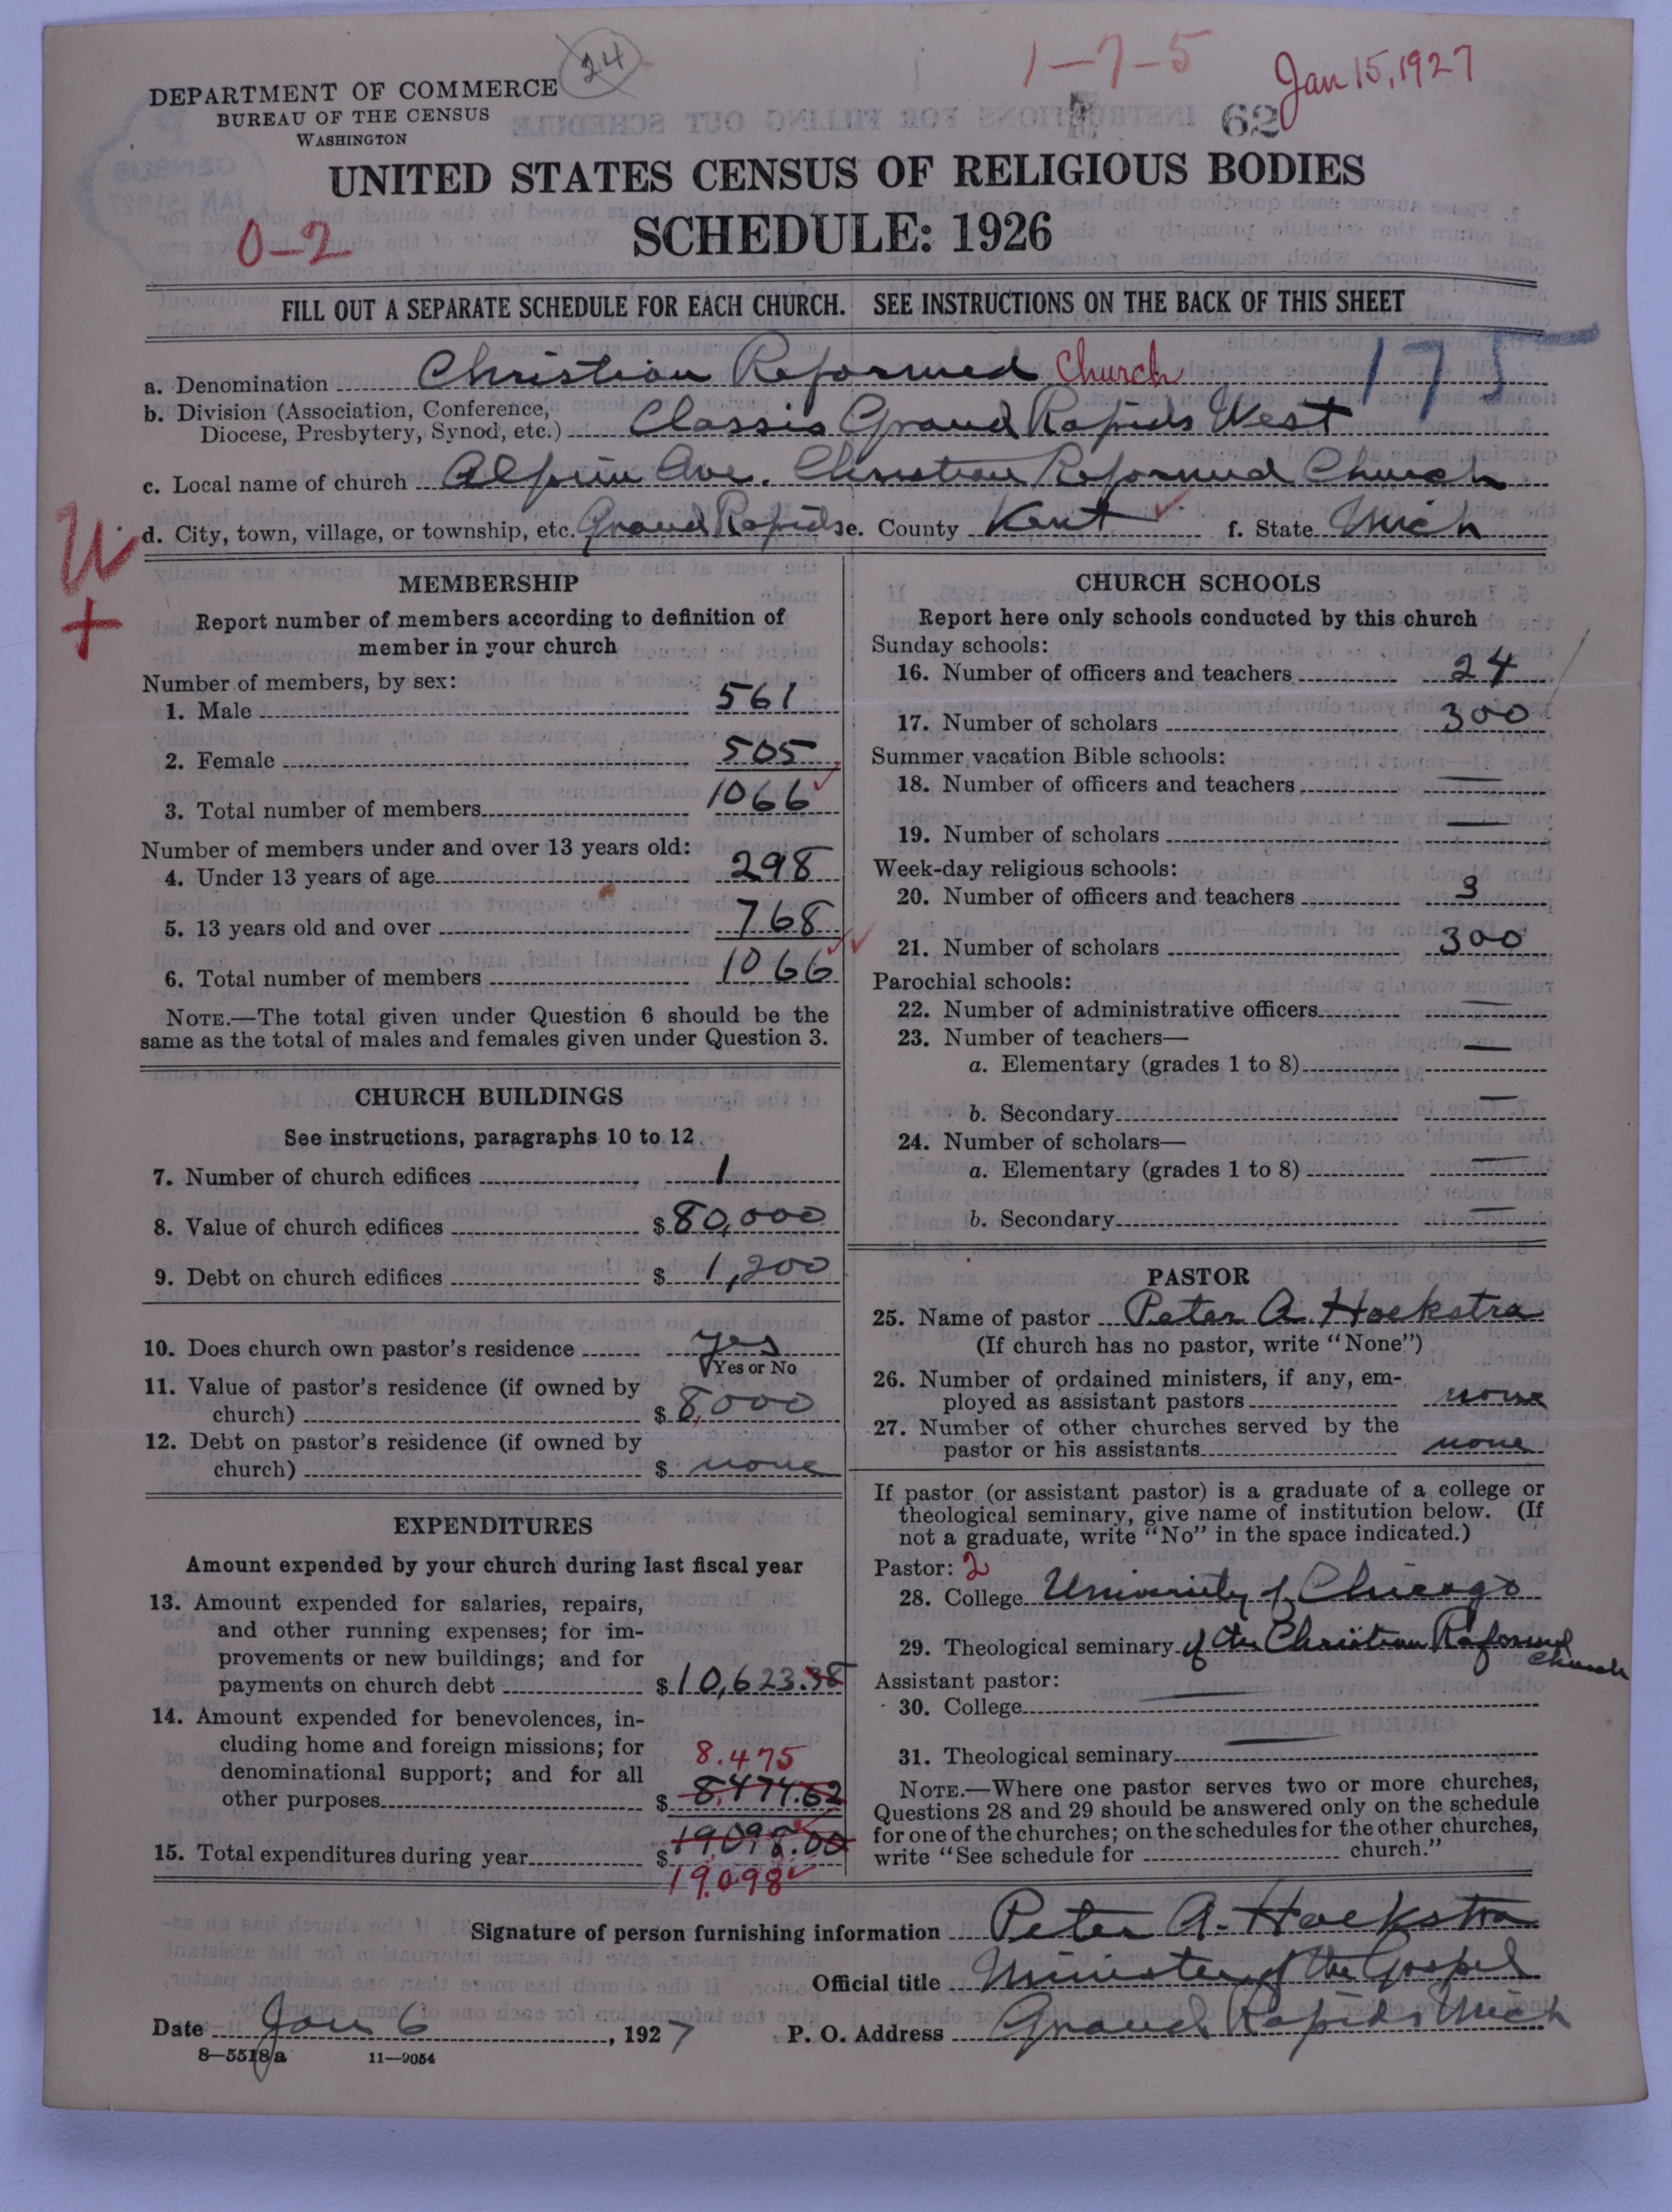 24
1-7-5
Jan 15, 1927
DEPARTMENT OF COMMERCE
BUREAU OF THE CENSUS
WASHINGTON
62
UNITED STATES CENSUS OF RELIGIOUS BODIES
SCHEDULE: 1926
0-2
FILL OUT A SEPARATE SCHEDULE FOR EACH CHURCH. SEE INSTRUCTIONS ON THE BACK OF THIS SHEET
175
a. Denomination Christian Reformed Church
b. Division (Association, Conference, Diocese, Presbytery, Synod, etc.) Classis Grand Rapids West
c. Local name of church Alpine Ave. Christian Reformed Church
d. City, town, village, or township, etc. Grand Rapids e. County Kent f. State Mich
MEMBERSHIP
Report number of members according to definition of
member in your church
Number of members, by sex:
1. Male 561
2. Female 505
3. Total number of members 1066
Number of members under and over 13 years old:
4. Under 13 years of age 298
5. 13 years old and over 768
6. Total number of members 1066
NOTE.—The total given under Question 6 should be the
same as the total of males and females given under Question 3.
CHURCH BUILDINGS
See instructions, paragraphs 10 to 12
7. Number of church edifices 1
8. Value of church edifices $ 80,000
9. Debt on church edifices $ 1,200
10. Does church own pastor's residence yes
Yes or No
11. Value of pastor's residence (if owned by
church) $ 8,000
12. Debt on pastor's residence (if owned by
church) $ none
EXPENDITURES
Amount expended by your church during last fiscal year
13. Amount expended for salaries, repairs,
and other running expenses; for im-
provements or new buildings; and for
payments on church debt $ 10,623.38
14. Amount expended for benevolences, in-
cluding home and foreign missions; for
denominational support; and for all
other purposes $ 8,474.62
8.475
15. Total expenditures during year $ 19,098.00
19,098
CHURCH SCHOOLS
Report here only schools conducted by this church
Sunday schools:
16. Number of officers and teachers 24
17. Number of scholars 300
Summer vacation Bible schools:
18. Number of officers and teachers —
19. Number of scholars —
Week-day religious schools:
20. Number of officers and teachers 3
21. Number of scholars 300
Parochial schools:
22. Number of administrative officers —
23. Number of teachers—
a. Elementary (grades 1 to 8) —
b. Secondary —
24. Number of scholars—
a. Elementary (grades 1 to 8) —
b. Secondary —
PASTOR
25. Name of pastor Peter A. Hoekstra
(If church has no pastor, write "None")
26. Number of ordained ministers, if any, em-
ployed as assistant pastors none
27. Number of other churches served by the
pastor or his assistants none
If pastor (or assistant pastor) is a graduate of a college or
theological seminary, give name of institution below. (If
not a graduate, write "No" in the space indicated.)
Pastor: 2
28. College University of Chicago
29. Theological seminary of the Christian Reformed Church
Assistant pastor:
30. College —
31. Theological seminary —
NOTE.—Where one pastor serves two or more churches,
Questions 28 and 29 should be answered only on the schedule
for one of the churches; on the schedules for the other churches,
write "See schedule for church."
Signature of person furnishing information Peter A. Hoekstra
Official title Minister of the Gospel
Date Jan 6, 1927 P. O. Address Grand Rapids Mich
8—5518a 11—9054